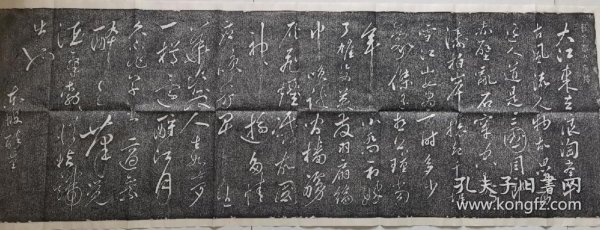 大江東去浪淘盡千
古風流人物故壘西
邊人道是三國周郎
赤壁亂石穿空驚
濤拍岸捲起千堆
雪江山如畫一時多少
豪傑遙想公瑾當
年小喬初嫁
了雄姿英發羽扇綸
巾談笑間檣艣
灰飛煙滅故國
神遊多情
應笑我早生
華髮人生如夢
一樽還酹江月
久不作草書適乘
醉走筆覺
酒氣勃勃從指端
出也
東坡醉筆
孔夫子旧书网
www.kongfz.com